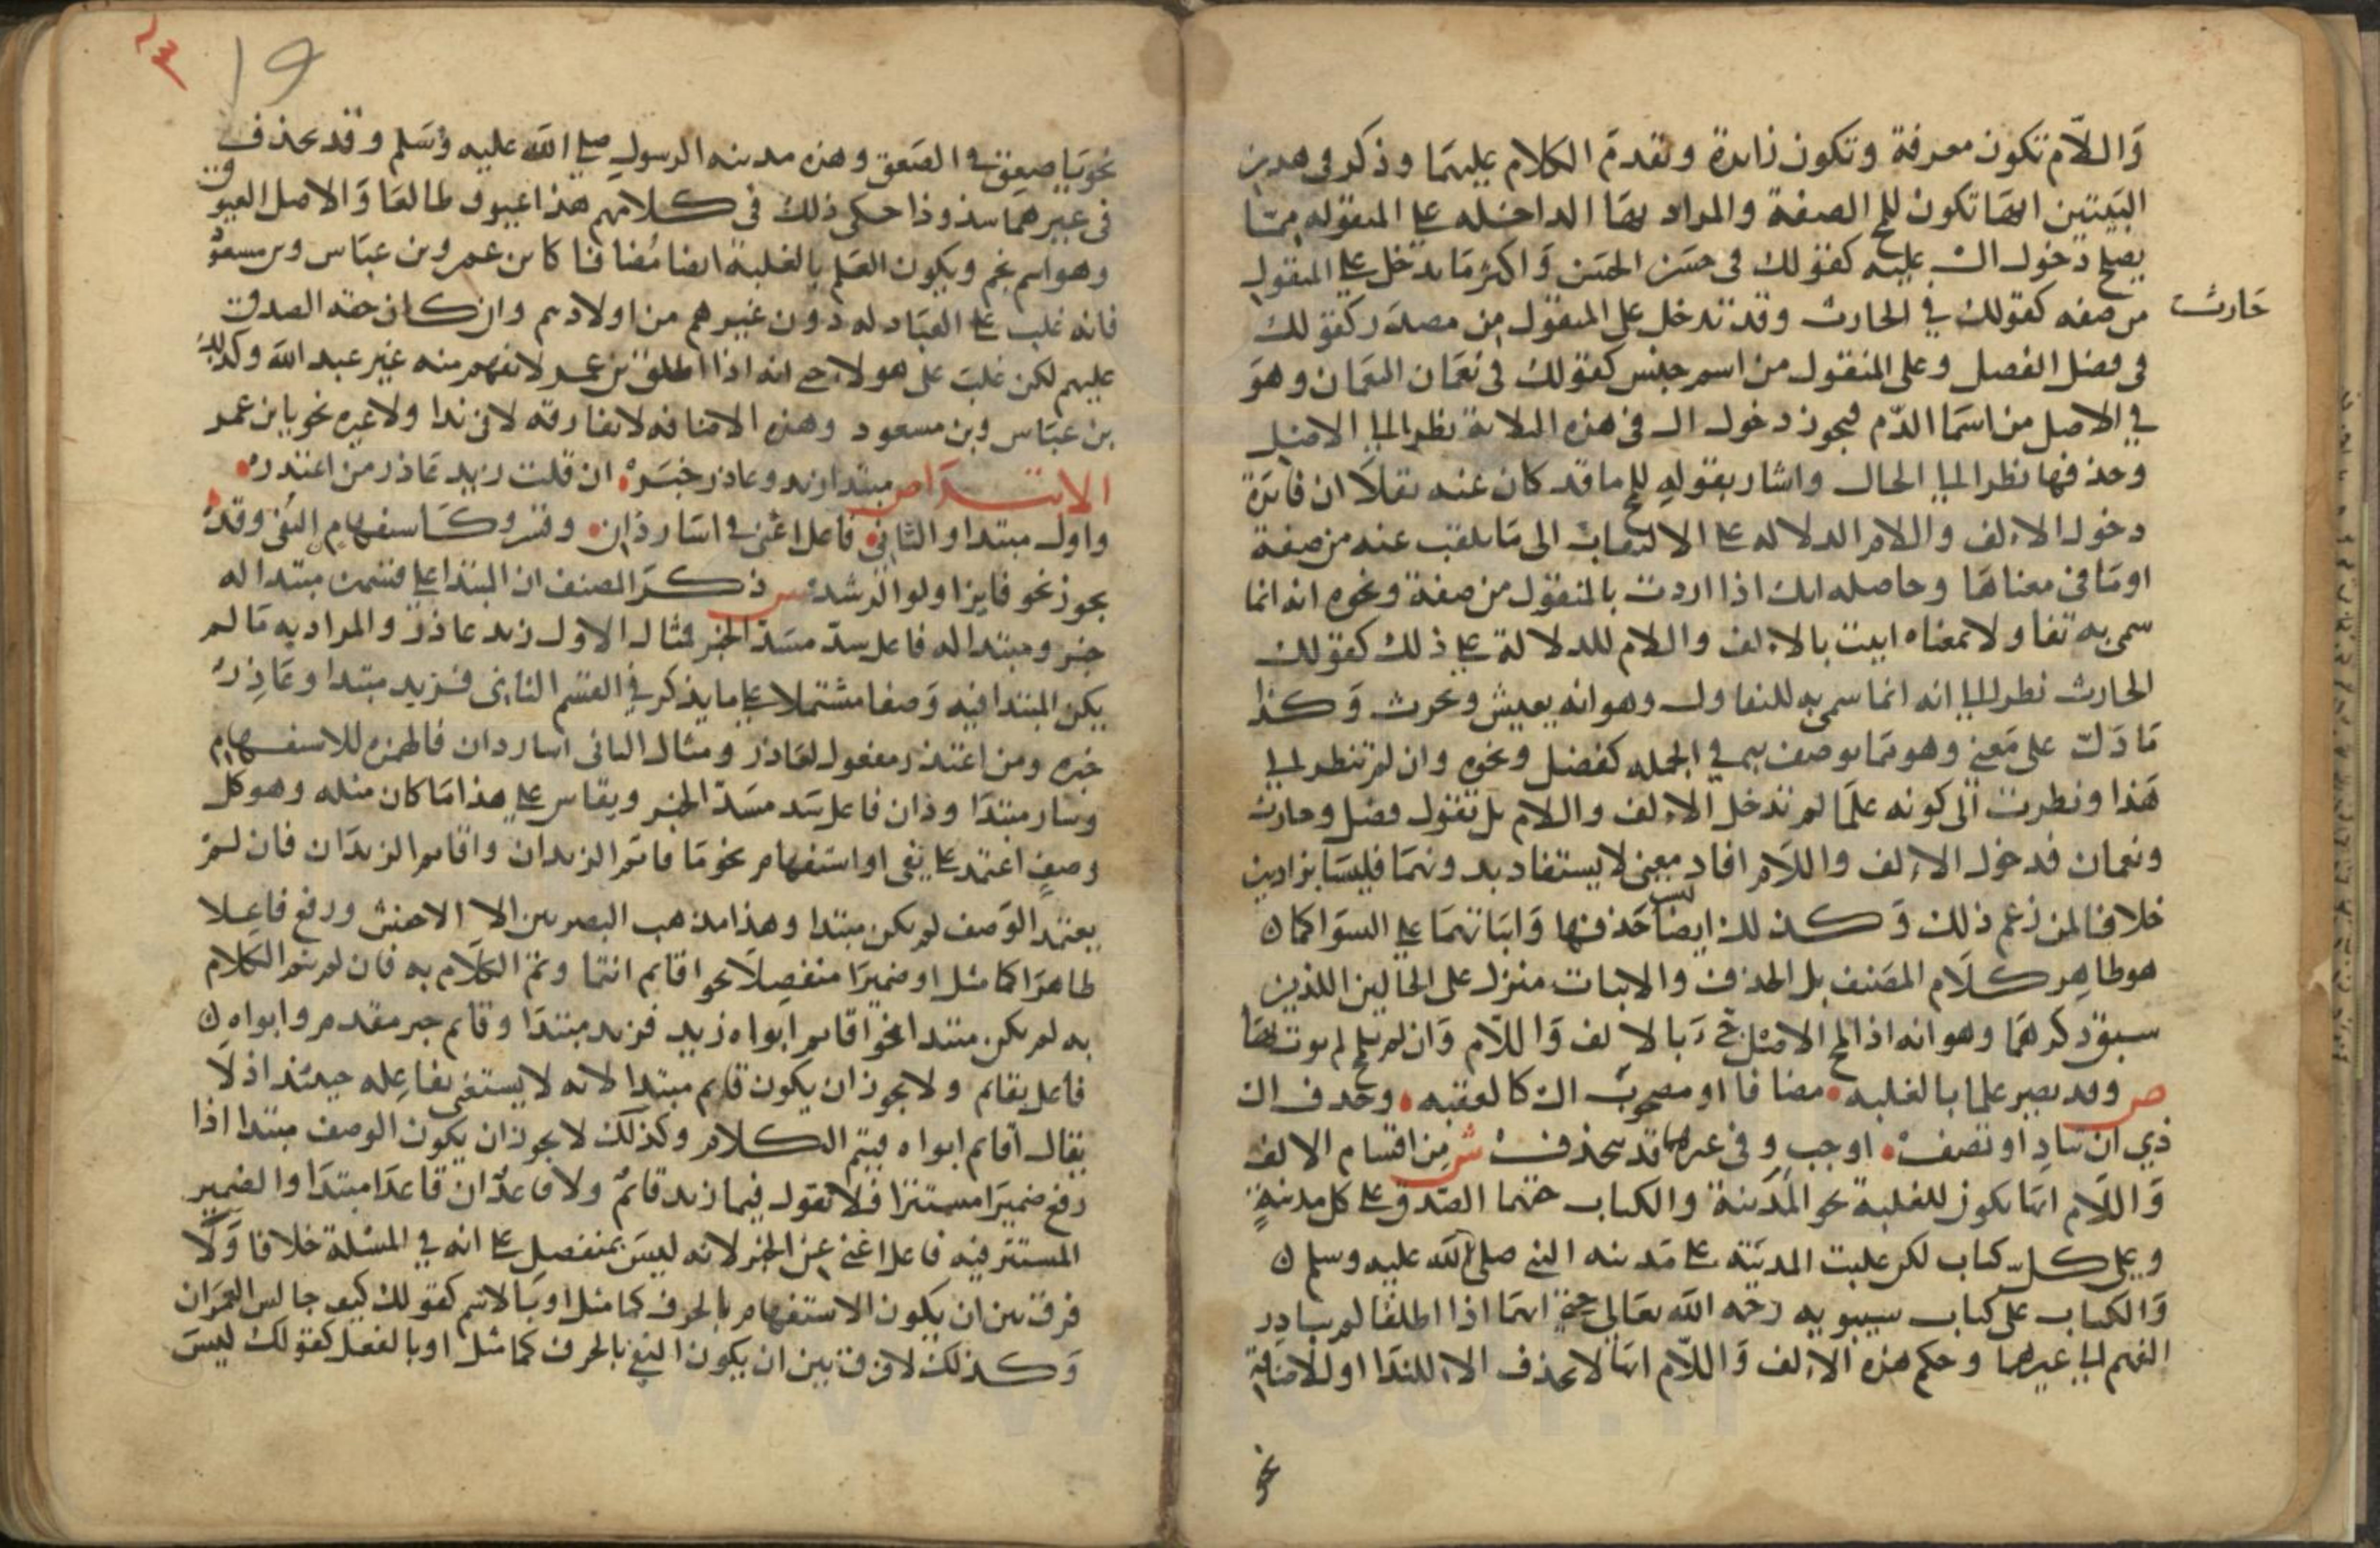 واللام تكون معرفة وتكون زائدة وتقدم الكلام عليهما وذكر في هذين
البيتين انها تكون للمح الصفة والمراد بها الداخله على المنقوله مما
يصلح دخول ال عليه كقولك في حسن الحسن واكثر ما تدخل على المنقول
من صفه كقولك في الحارث وقد تدخل على المنقول من مصدر كقولك
حارث
في فضل الفضل وعلى المنقول من اسم جنس كقولك في نعمان النعمان وهو
في الاصل من اسما الدم فيجوز دخول ال في هذه الثلاثة نظرا الى الاصل
وحذفها نظرا الى الحال واشار بقوله للمح ما قد كان عنه نقلا ان فائدة
دخول الالف واللام الدلاله على الالتفات الى ما نقلت عنه من صفة
او ما في معناها وحاصله انك اذا اردت بالمنقول من صفة ونحوه انه انما
سمي به تفاولا بمعناه اتيت بالالف واللام للدلالة على ذلك كقولك
الحارث نظرا الى انه انما سمي به للتفاول وهو انه يعيش ويحرث وكذا
ما دل على معنى وهو مما يوصف به في الجمله كفضل ونحوه وان لم تنظر الى
هذا ونظرت الى كونه علما لم تدخل الالف واللام بل تقول فضل وحارث
ونعمان فدخول الالف واللام افاد معنى لا يستفاد بدونهما فليستا بزائدتين
خلافا لمن زعم ذلك وكذلك ايضا ليس حذفها واثباتهما على السوا كما
هو ظاهر كلام المصنف بل الحذف والاثبات منزل على الحالين اللذين
سبق ذكرهما وهو انه اذا لمح الاصل جيء بالالف واللام وان لم يلمح لم يوت بهما
ص وقد يصير علما بالغلبه مضافا او مصحوب ال كالعقبه وحذف ال
ذي ان تناد او تضف اوجب وفي غيرهما قد تنحذف ش من اقسام الالف
واللام انها تكون للغلبة نحو المدينة والكتاب حقهما الصدق على كل مدينة
وعلى كل كتاب لكن غلبت المدينة على مدينه النبي صلى الله عليه وسلم
والكتاب على كتاب سيبويه رحمه الله تعالى حتى انهما اذا اطلقا لم يتبادر
الفهم الى غيرهما وحكم هذه الالف واللام انها لا تحذف الا للندا او للاضافة
نحو
١٩
نحو يا صعق في الصعق وهذه مدينه الرسول صلى الله عليه وسلم وقد تحذف
في غيرهما شذوذا حكى ذلك في كلامهم هذا عيوق طالعا والاصل العيوق
وهو اسم نجم ويكون العلم بالغلبة ايضا مضافا كابن عمر وبن عباس وبن مسعود
فانه غلب على العبادله دون غيرهم من اولادهم وان كان حقه الصدق
عليهم لكن غلبت على هولاء حتى انه اذا اطلق بن عمر لا يفهم منه غير عبد الله وكذلك
بن عباس وبن مسعود وهذه الاضافه لا تفارقه لا في ندا ولا غيره نحو يا بن عمر
الابتدا ص مبتدا زيد وعاذر خبر ان قلت زيد عاذر من اعتذر
واول مبتدا والثاني فاعل اغنى في اسار ذان وقس وكاستفهام النفي وقد
يجوز نحو فايز اولوا الرشد ش ذكر المصنف ان المبتدا على قسمين مبتدا له
خبر ومبتدا له فاعل سد مسد الخبر فمثال الاول زيد عاذر والمراد به ما لم
يكن المبتدا فيه وصفا مشتملا على ما يذكر في القسم الثاني فزيد مبتدا وعاذر
خبره ومن اعتذر مفعول لعاذر ومثال الثاني اسار ذان فالهمزه للاستفهام
وسار مبتدا وذان فاعل سد مسد الخبر ويقاس على هذا ما كان مثله وهو كل
وصف اعتمد على نفي او استفهام نحو ما قائم الزيدان واقائم الزيدان فان لم
يعتمد الوصف لم يكن مبتدا وهذا مذهب البصريين الا الاخفش ورفع فاعلا
ظاهرا كما مثل او ضميرا منفصلا نحو اقائم انتما وتم الكلام به فان لم يتم الكلام
به لم يكن مبتدا نحو اقائم ابواه زيد فزيد مبتدا وقائم خبر مقدم وابواه
فاعل بقائم ولا يجوز ان يكون قائم مبتدا لانه لا يستغني بفاعله حينئذ اذ لا
يقال اقائم ابواه فيتم الكلام وكذلك لا يجوز ان يكون الوصف مبتدا اذا
رفع ضميرا مستترا فلا تقول فيما زيد قائم ولا قاعد ان قاعدا مبتدا والضمير
المستتر فيه فاعل اغنى عن الخبر لانه ليس بمنفصل على انه في المسئلة خلافا ولا
فرق بين ان يكون الاستفهام بالحرف كما مثل او بالاسم كقولك كيف جالس العمران
وكذلك لا فرق بين ان يكون النفي بالحرف كما مثل او بالفعل كقولك ليس